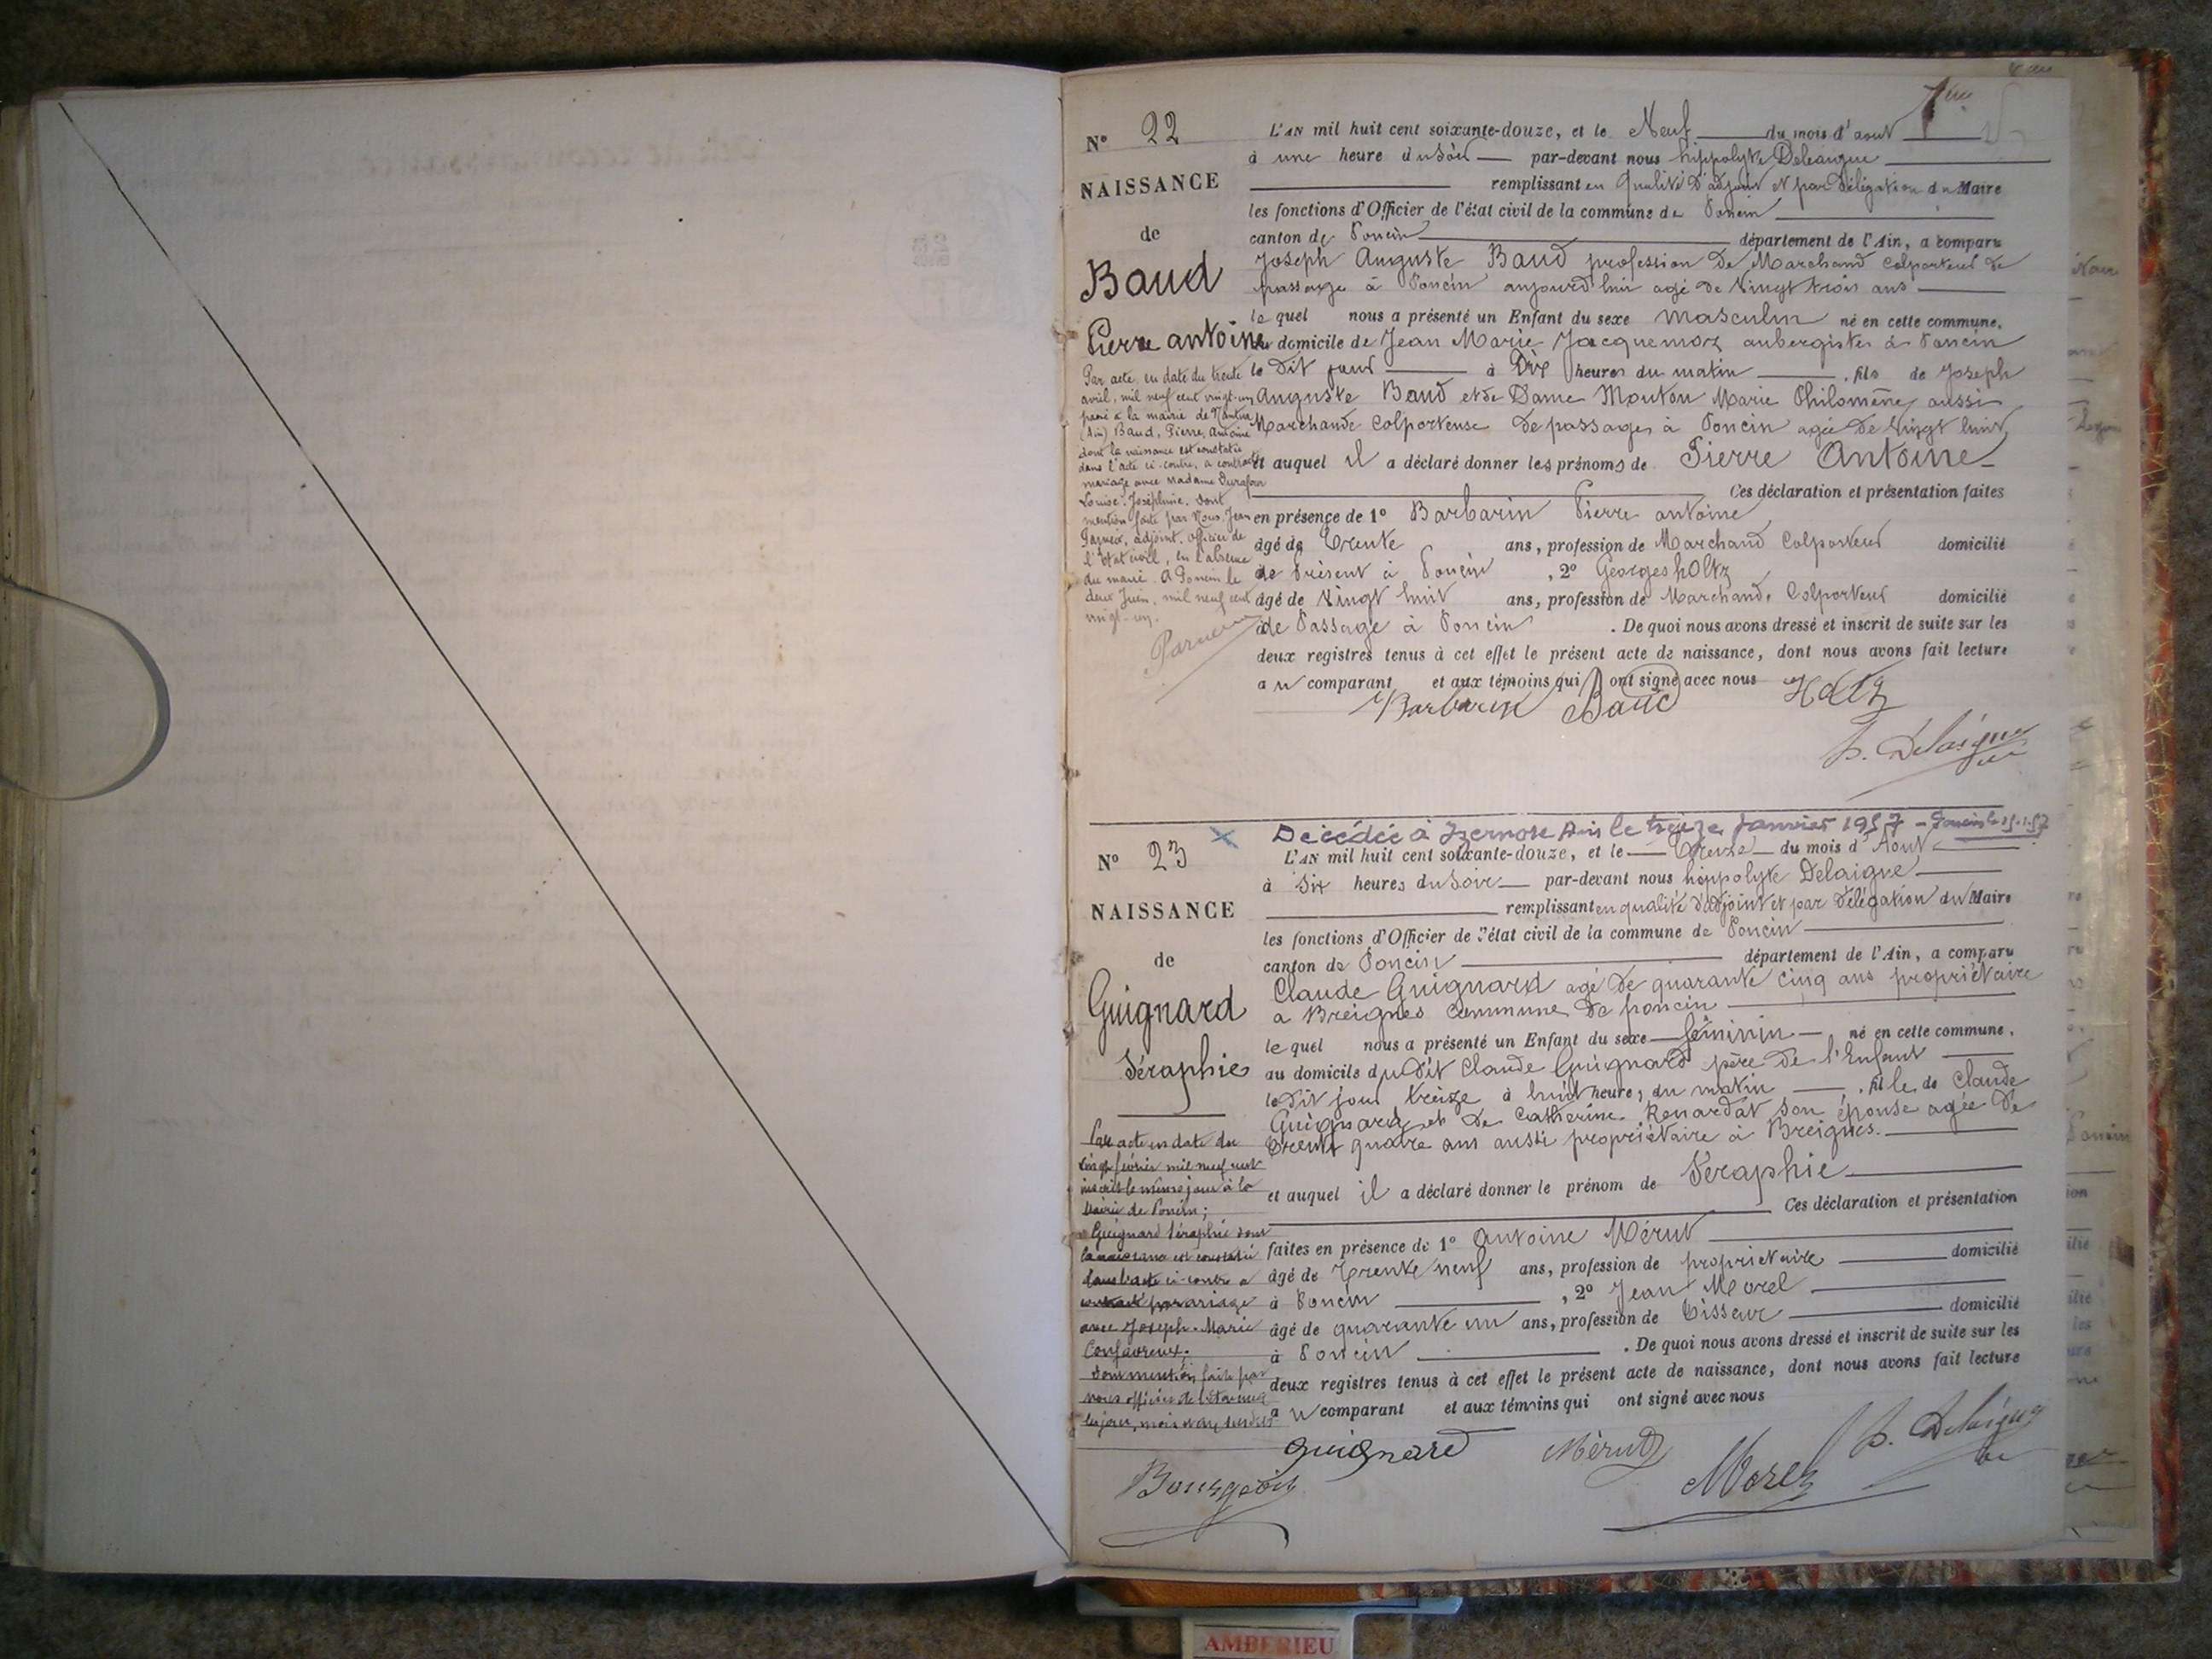 N° 22
NAISSANCE
de
Baud
Pierre antoine
Par acte en date du trente
avril, mil neuf cent vingt-un
passé à la mairie de Nantua
(Ain) Baud, Pierre, Antoine
dont la naissance est constatée
dans l'acte ci-contre, a contracté
mariage avec Madame Durafour
Louise Joséphine. Dont
mention faite par Nous Jean
adjoint, officier de
l'état civil, en l'absence
du maire. A Poncin le
deux Juin, mil neuf cent
vingt-un.
L'AN mil huit cent soixante-douze, et le Neuf du mois d'aout
à une heure du Soir par-devant nous hippolyte Delaigue
remplissant en qualité d'adjoint et par délégation du Maire
les fonctions d'Officier de l'état civil de la commune de Poncin
canton de Poncin département de l'Ain, a comparu
Joseph Auguste Baud profession de Marchand Colporteur de
passage à Poncin aujourd'hui agé de Vingt trois ans
le quel nous a présenté un Enfant du sexe masculin né en cette commune,
au domicile de Jean Marie Jacquemoz aubergiste à Poncin
le dit jour à Dix heures du matin, fils de Joseph
Auguste Baud et de Dame Mouton Marie Philomène aussi
Marchande Colporteuse de passage à Poncin agée de Vingt huit
et auquel il a déclaré donner les prénoms de Pierre Antoine
Ces déclaration et présentation faites
en présence de 1° Barbarin Pierre antoine
âgé de Trente ans, profession de Marchand Colporteur domicilié
de Présent à Poncin, 2° Georges hOltz
âgé de Vingt huit ans, profession de Marchand Colporteur domicilié
de Passage à Poncin. De quoi nous avons dressé et inscrit de suite sur les
deux registres tenus à cet effet le présent acte de naissance, dont nous avons fait lecture
au comparant et aux témoins qui ont signé avec nous
Barbarin Baud Holtz
h. Delaigue
Decédée à Izernore Ain le treize Janvier 1957 - Poncin le 15.1.57
N° 23
NAISSANCE
de
Guignard
Séraphie
Par acte en date du
vingt février mil neuf cent
inscrit le même jour à la
Mairie de Poncin;
Guignard Séraphie dont
la naissance est constatée
dans l'acte ci-contre a
contracté mariage
avec Joseph-Marie
Confavreux;
dont mention faite par
nous officier de l'état civil
les jour, mois et an susdits
Bourgeois
L'AN mil huit cent soixante-douze, et le Treize du mois d'Aout
à Six heures du Soir par-devant nous hippolyte Delaigue
remplissant en qualité d'adjoint et par délégation du Maire
les fonctions d'Officier de l'état civil de la commune de Poncin
canton de Poncin département de l'Ain, a comparu
Claude Guignard agé de quarante cinq ans propriétaire
a Breignes Commune de poncin
le quel nous a présenté un Enfant du sexe féminin, né en cette commune,
au domicile du dit Claude Guignard père de l'Enfant
le dit jour treize à huit heures du matin, fille de Claude
Guignard et de Catherine Renardat son épouse agée de
trente quatre ans aussi propriétaire à Breignes.
et auquel il a déclaré donner le prénom de Séraphie
Ces déclaration et présentation
faites en présence de 1° Antoine Mérut
âgé de Trente neuf ans, profession de propriétaire domicilié
à Poncin, 2° Jean Morel
âgé de quarante un ans, profession de Tisseur domicilié
à Poncin. De quoi nous avons dressé et inscrit de suite sur les
deux registres tenus à cet effet le présent acte de naissance, dont nous avons fait lecture
au comparant et aux témoins qui ont signé avec nous
Guignard Mérut Morel h. Delaigue
AMBERIEU